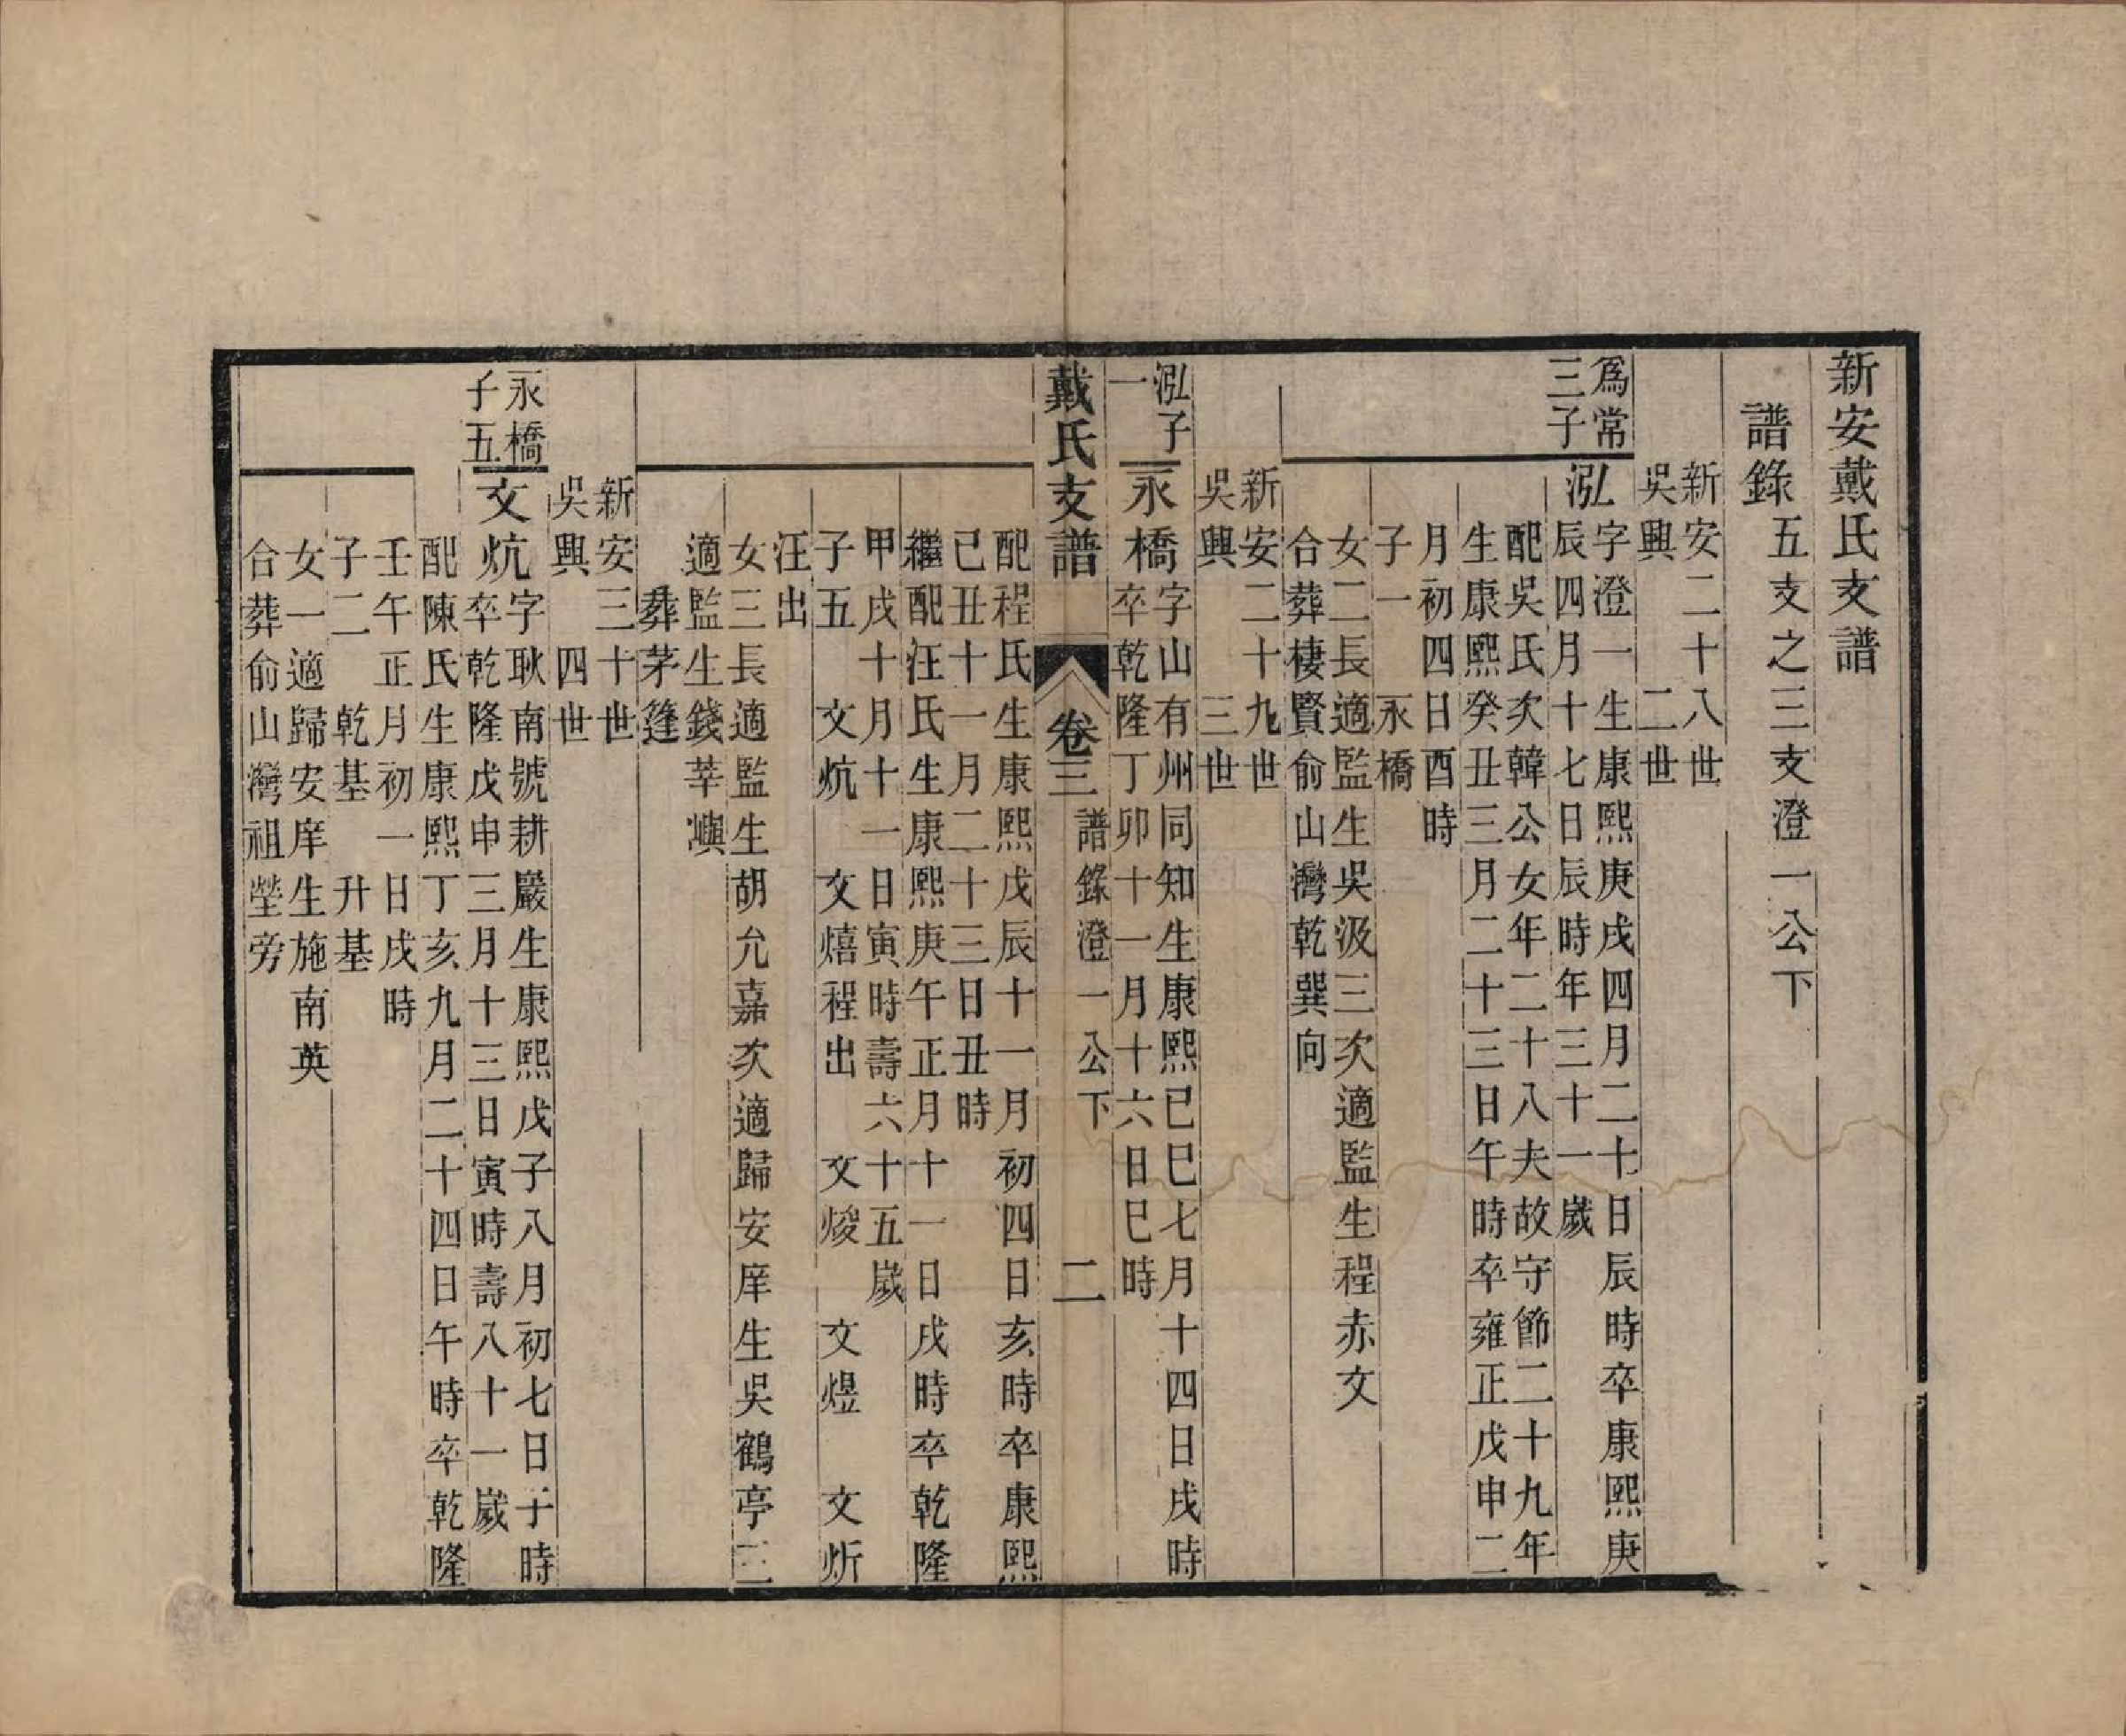 新安戴氏支譜
譜錄五支之三支澄一公下
新安二十八世
吳興　二世
爲常
三子
泓
字澄一生康熙庚戌四月二十日辰時卒康熙庚
辰四月十七日辰時年三十一歲
配吳氏次韓公女年二十八夫故守節二十九年
生康熙癸丑三月二十三日午時卒雍正戊申二
月初四日酉時
子一　永橋
女二長適監生吳汲三次適監生程赤文
合葬棲賢俞山灣乾巽向
新安二十九世
吳興　三世
泓子
一
永橋
字山有州同知生康熙己巳七月十四日戌時
卒乾隆丁卯十一月十六日巳時
戴氏支譜　卷三　譜錄澄一公下　二
配程氏生康熙戊辰十一月初四日亥時卒康熙
己丑十一月二十三日丑時
繼配汪氏生康熙庚午正月十一日戌時卒乾隆
甲戌十月十一日寅時壽六十五歲
子五　文炕　文熺程出　文焌　文煜　文炘
汪出
女三長適監生胡允嘉次適歸安庠生吳鶴亭三
適監生錢莘嶼
葬茅篷
新安三十世
吳興　四世
永橋
子五
文炕
字耿南號耕巖生康熙戊子八月初七日子時
卒乾隆戊申三月十三日寅時壽八十一歲
配陳氏生康熙丁亥九月二十四日午時卒乾隆
壬午正月初一日戌時
子二　乾基　升基
女一適歸安庠生施南英
合葬俞山灣祖塋旁